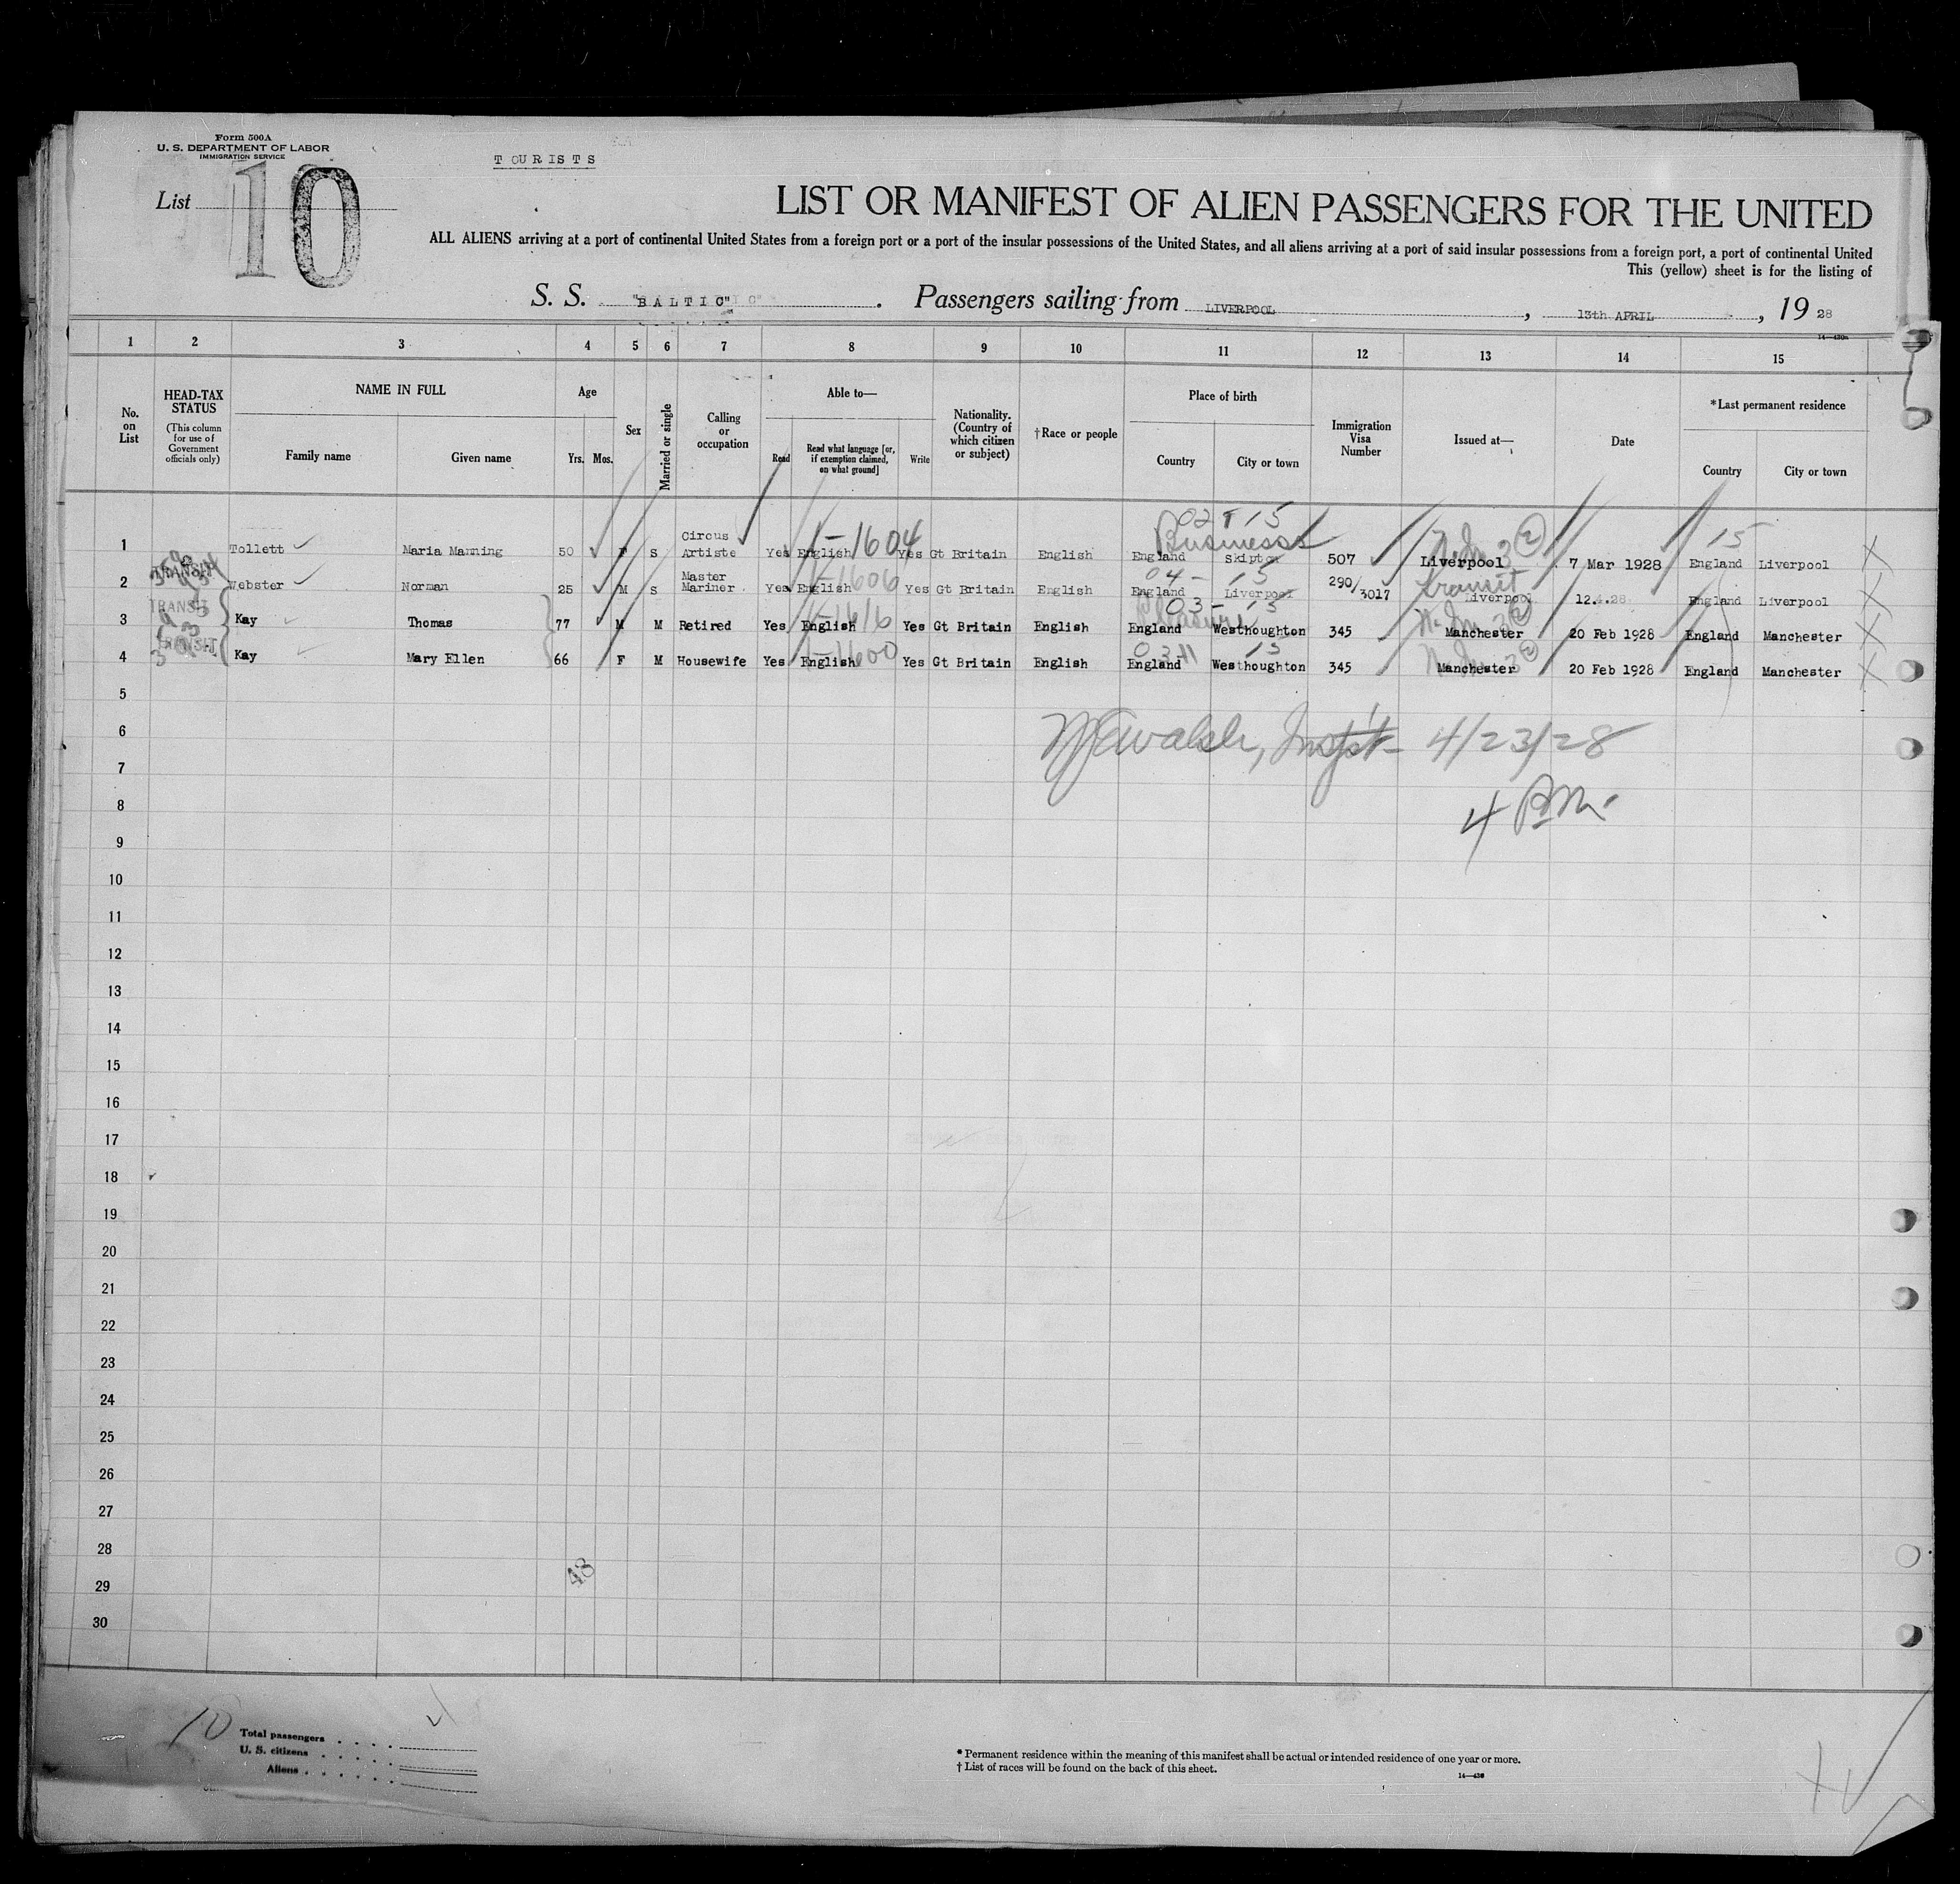 Form 500A
U. S. DEPARTMENT OF LABOR
IMMIGRATION SERVICE
TOURISTS
List 10
LIST OR MANIFEST OF ALIEN PASSENGERS FOR THE UNITED
ALL ALIENS arriving at a port of continental United States from a foreign port or a port of the insular possessions of the United States, and all aliens arriving at a port of said insular possessions from a foreign port, a port of continental United
This (yellow) sheet is for the listing of
S. S. "BALTIC". Passengers sailing from LIVERPOOL, 13th APRIL, 19 28
14—430a
1 2 3 4 5 6 7 8 9 10 11 12 13 14 15
No. on List
HEAD-TAX STATUS
(This column for use of Government officials only)
NAME IN FULL
Family name Given name
Age
Yrs. Mos.
Sex
Married or single
Calling or occupation
Able to—
Read Read what language [or, if exemption claimed, on what ground] Write
Nationality. (Country of which citizen or subject)
†Race or people
Place of birth
Country City or town
Immigration Visa Number
Issued at—
Date
*Last permanent residence
Country City or town
02 15
Business
1-1604
15
1 Tollett Maria Manning 50 F S Circus Artiste Yes English Yes Gt Britain English England Skipton 507 Liverpool 7 Mar 1928 England Liverpool
TRANSIT
1-1606
04- 15
Transit
2 Webster Norman 25 M S Master Mariner Yes English Yes Gt Britain English England Liverpool 290/3017 Liverpool 12.4.28 England Liverpool
TRANSIT
1-1616
03-15
Pleasure
3 Kay Thomas 77 M M Retired Yes English Yes Gt Britain English England Westhoughton 345 Manchester 20 Feb 1928 England Manchester
TRANSIT
1-1600
15
4 Kay Mary Ellen 66 F M Housewife Yes English Yes Gt Britain English England Westhoughton 345 Manchester 20 Feb 1928 England Manchester
5
6
Walsh, Inspt- 4/23/28
7
8
4 P.M.
9
10
11
12
13
14
15
16
17
18
19
20
21
22
23
24
25
26
27
28
48
29
30
10
Total passengers
U. S. citizens
Aliens
* Permanent residence within the meaning of this manifest shall be actual or intended residence of one year or more.
† List of races will be found on the back of this sheet.
14—430